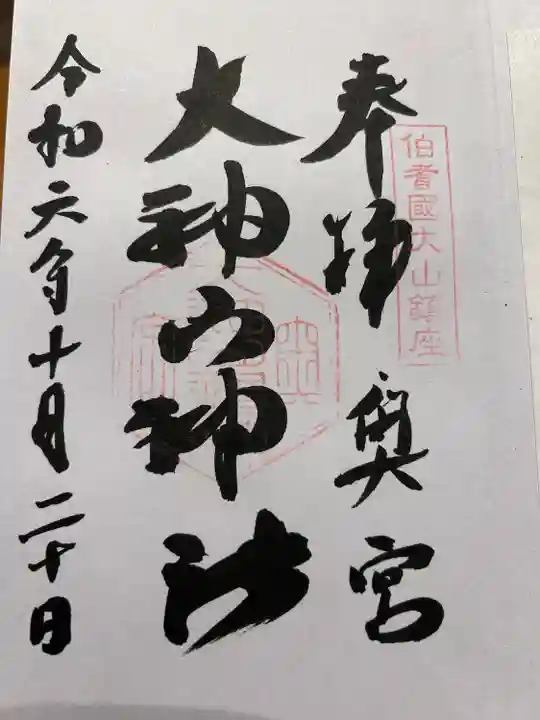 伯耆國大山鎮座
奉拝 奥宮
大神山神社
令和六年十月二十日